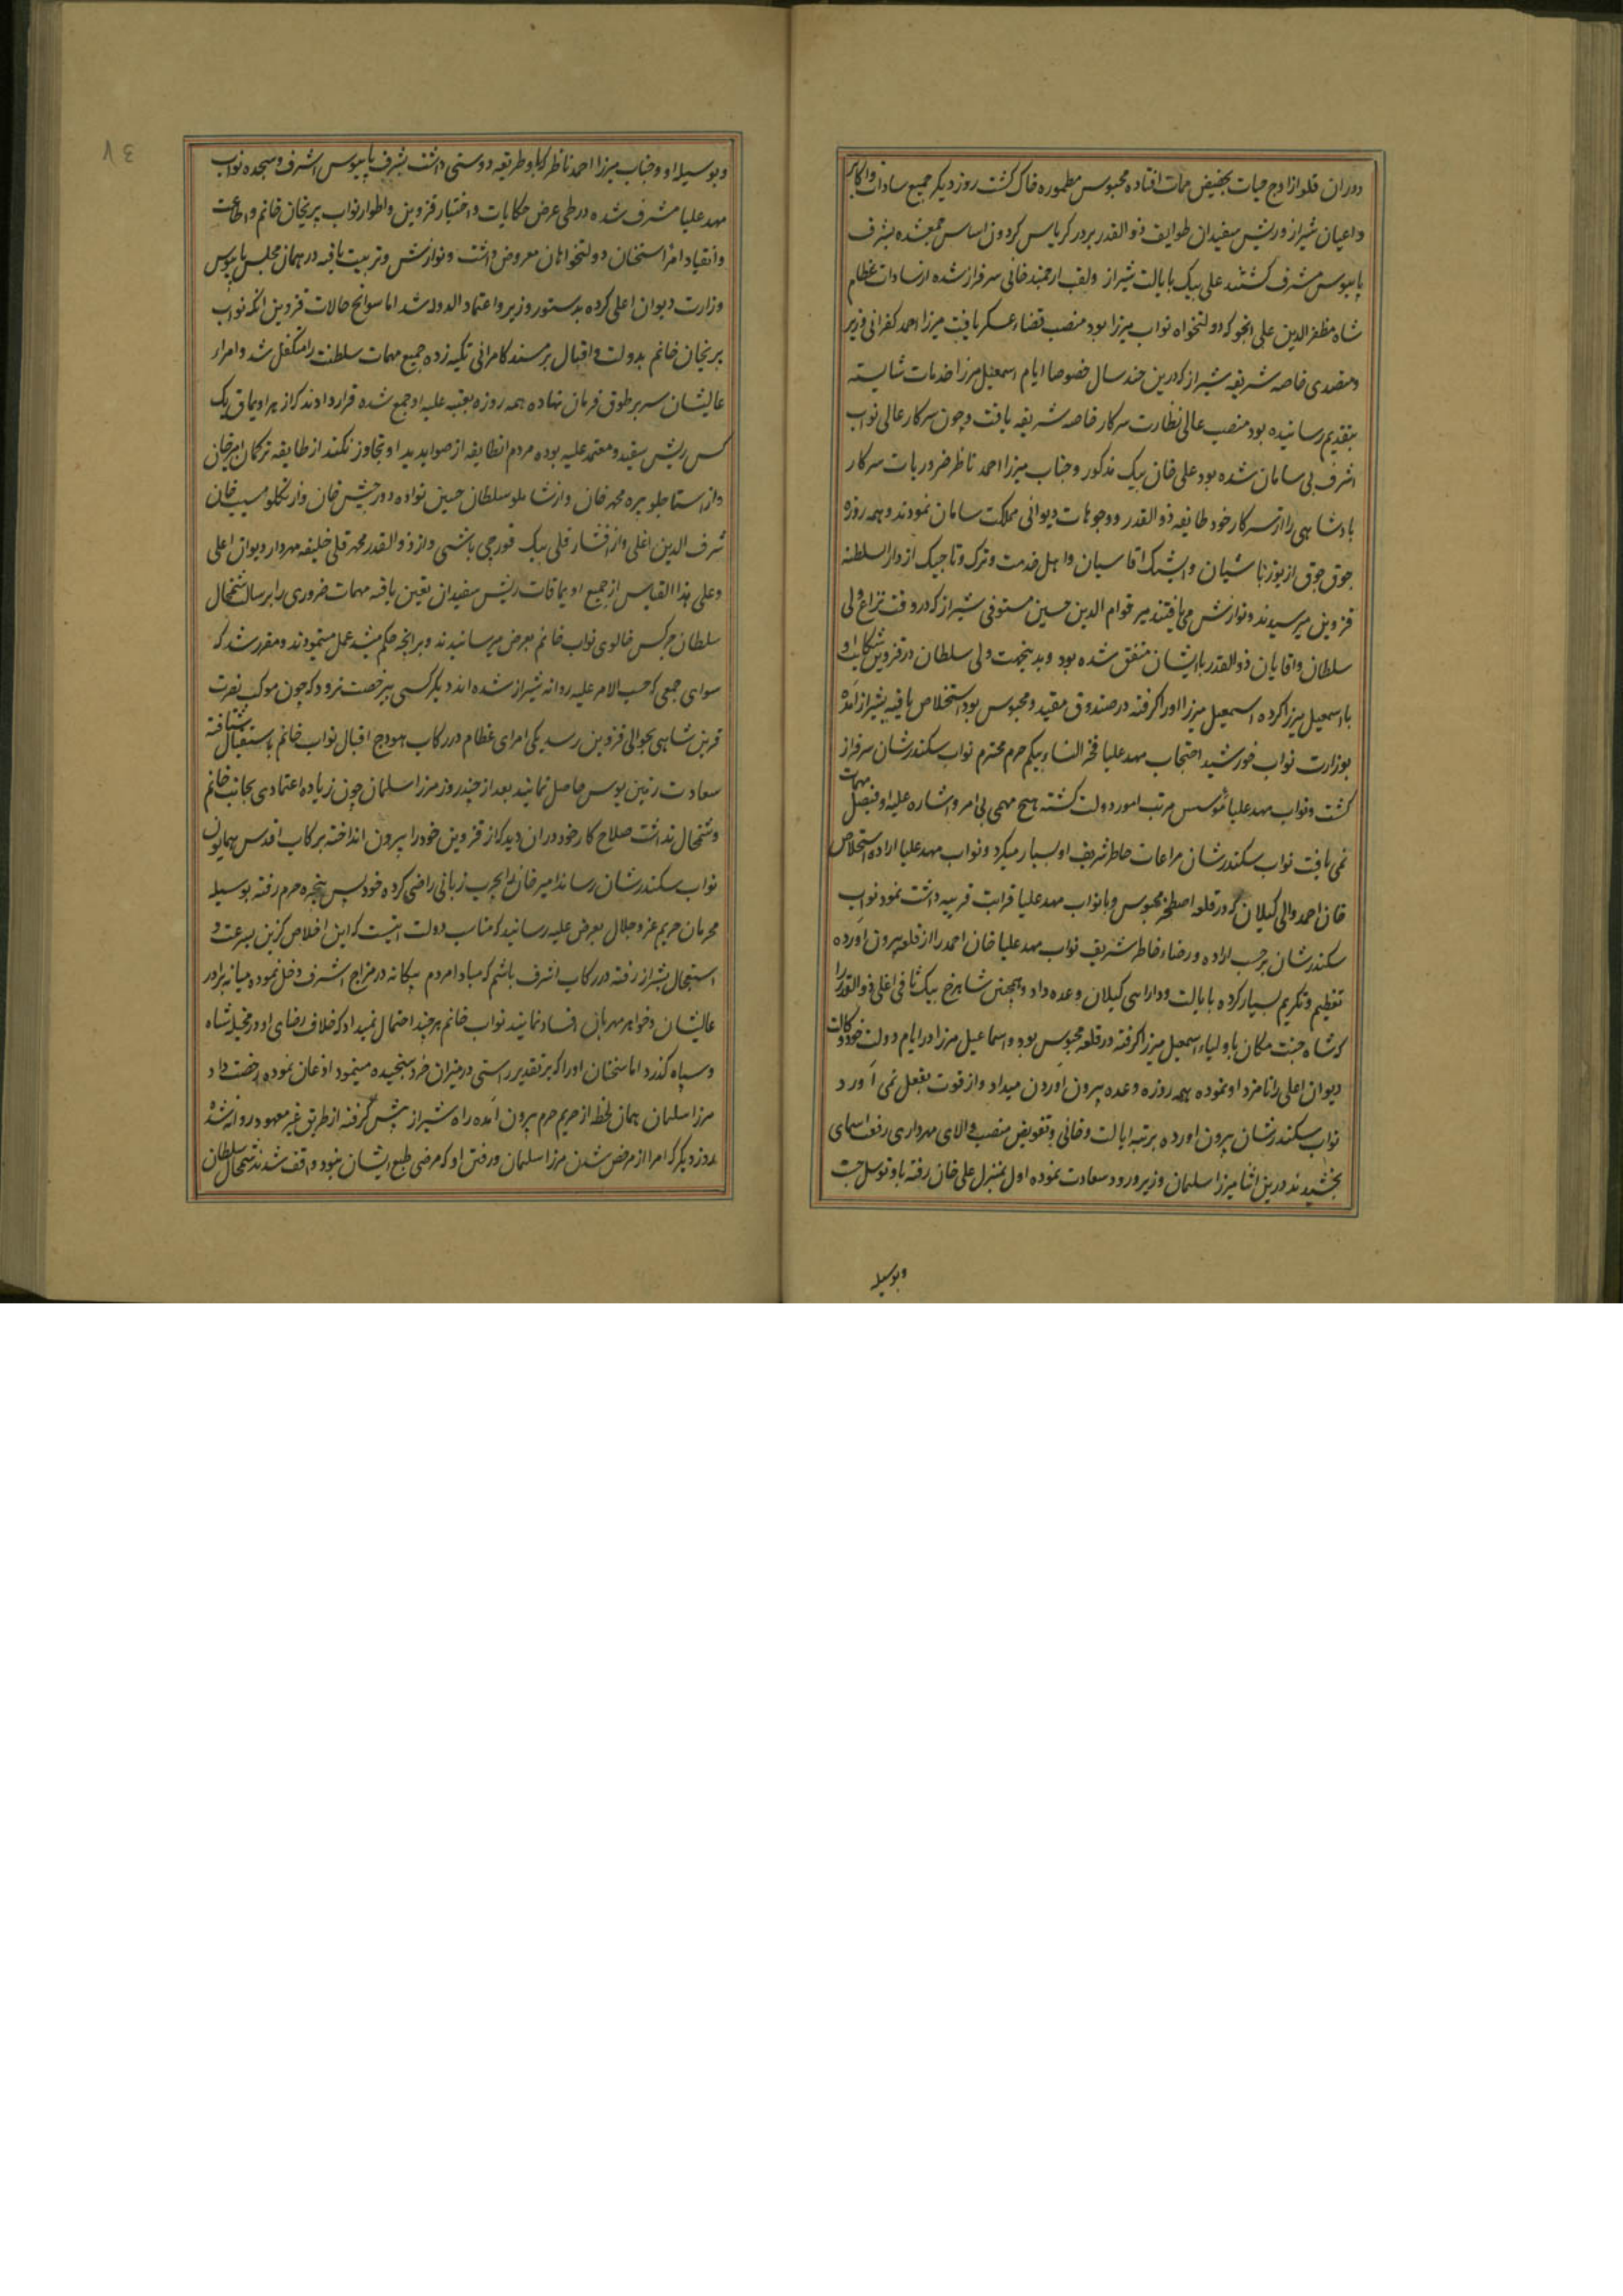 دوران قلو از اوج حیات بحضیض ممات افتاده محبوس مطموره خاک کشت روز دیکر جمیع سادات و اکابر
و اعیان شیراز و ریش سفیدان طوایف ذوالقدر بر در کریاس کردون اساس جمع شده بشرف
پایبوس مشرف کشتند علی بیک بایالت شیراز ولقب ارجمند خانی سرفراز شده از سادات عظام
شاه مظفرالدین علی انجو که دولتخواه نواب میرزا بود منصب قضاء عسکر یافت میرزا احمد کفرانی وزیر
ومتصدی خاصه شریفه شیراز که درین چند سال خصوصا ایام اسمعیل میرزا خدمات شایسته
بتقدیم رسانیده بود منصب عالی نظارت سرکار خاصه شریفه یافت و چون سرکار عالی نواب
اشرف بی سامان شده بود علی خان بیک مذکور و جناب میرزا احمد ناظر ضروریات سرکار
بادشاهی را از سرکار خود طایفه ذوالقدر و وجوهات دیوانی مملکت سامان نمودند و همه روزه
جوق جوق از یوزباشیان و ایشک اقاسیان و اهل خدمت و ترک و تاجیک از دارالسلطنه
قزوین میرسیدند و نوازش می یافتند میر قوام الدین حسین مستوفی شیراز که در وقت نزاع ولی
سلطان و اقایان ذوالقدر با ایشان متفق شده بود و بدینجهت ولی سلطان در قزوین شکایت او
با اسمعیل میرزا کرده اسمعیل میرزا او را کرفته در صندوق مقید و محبوس بود استخلاص یافته بشیراز آمده
بوزارت نواب خورشید احتجاب مهد علیا فخر النساء بیکم حرم محترم نواب سکندرشان سرفراز
کشت و نواب مهد علیا مؤسس مرتب امور دولت کشته هیچ مهمی بی امر و اشاره علیه او فیصل مهمات
نمی یافت نواب سکندرشان مراعات خاطر شریف او بسیار میکرد و نواب مهد علیا اراده استخلاص
خان احمد والی کیلان که در قلعه اصطخر محبوس و با نواب مهد علیا قرابت قریبه داشت نمود نواب
سکندرشان بر حسب اراده و رضاء خاطر شریف نواب مهد علیا خان احمد را از قلعه بیرون آورده
تعظیم و تکریم بسیار کرده بایالت و دارایی کیلان وعده داد و همچنین شاهرخ بیک اغلی ذوالقدر را
که شاه جنت مکان با ولیاء اسمعیل میرزا کرفته در قلعه محبوس بود و اسماعیل میرزا در ایام دولت خود وکالت
دیوان اعلی را نامزد او نموده همه روزه وعده بیرون آوردن میداد و از قوت بفعل نمی آورد
نواب سکندرشان بیرون آورده برتبه ایالت و خانی و تفویض منصب والای مهرداری رفعت اسمای
بخشیدند درین اثنا میرزا سلمان وزیر ورود سعادت نموده اول بمنزل علی خان رفته باو توسل جست
وبوسیله
۳۷
وبوسیله او و جناب میرزا احمد ناظر که باو طریقه دوستی داشت بشرف پایبوس اشرف و سجده نواب
مهد علیا مشرف شده در طی عرض حکایات و اختیار قزوین و اطوار نواب پریخان خانم و اطاعت
وانقیاد امرا سخنان دولتخواهان معروض داشت و نوازش و تربیت یافته در همان مجلس پایبوس
وزارت دیوان اعلی کرده بدستور وزیر و اعتمادالدوله شد اما سوانح حالات قزوین آنکه نواب
پریخان خانم بدولت و اقبال بر مسند کامرانی تکیه زده جمیع مهمات سلطنت را متکفل شد و امراء
عالیشان سر بر طوق فرمان نهاده همه روزه بعتبه علیه او جمع شده قرار دادند که از هر اویماق یک
کس ریش سفید و معتمد علیه بوده مردم انطایفه از صوابدید او تجاوز نکنند از طایفه ترکمان امیرخان
و از استاجلو پیره محمد خان و از شاملو سلطان حسین نواده دورمیش خان و از تکلو مسیب خان
شرف الدین اغلی و از افشار قلی بیک قورچی باشی و از ذوالقدر محمد قلی خلیفه مهردار و دیوان اعلی
وعلی هذا القیاس از جمیع اویماقات ریش سفیدان تعین یافته مهمات ضروری را برسالت شمخال
سلطان چرکس خالوی نواب خانم بعرض میرسانیدند و بر انچه حکم میشد عمل مینمودند و مقرر شد که
سوای جمعی که حسب الامر علیه روانه شیراز شده اند دیکر کسی بیرخصت نرود که چون موکب نصرت
قرین شاهی بحوالی قزوین رسد یکی امرای عظام در رکاب هودج اقبال نواب خانم باستقبال شتافته
سعادت زمین بوس حاصل نمایند بعد از چند روز میرزا سلمان چون زیاده اعتمادی بجانب خانم
وشمخال نداشت صلاح کار خود در ان دید که از قزوین خود را بیرون انداخته برکاب اقدس همایون
نواب سکندرشان رساند امیر خان را بچرب زبانی راضی کرده خود پس پنجره حرم رفته بوسیله
محرمان حریم عز و جلال بعرض علیه رسانید که مناسب دولت اینست که این اخلاص کزین بسرعت و
استعجال بشیراز رفته در رکاب اشرف باشم که مبادا مردم بیکانه در مزاج اشرف دخل نموده میانه برادر
عالیشان و خواهر مهربان افساد نمایند نواب خانم هر چند احتمال نمیداد که خلاف رضای او در مخیله شاه
وسپاه کذرد اما سخنان او را که بر تقدیر راستی در میزان خرد سنجیده مینمود اذعان نموده رخصت داد
مرزا سلمان همان لحظه از حریم حرم بیرون آمده راه شیراز پیش کرفته از طریق غیر معهود روانه شد
روز دیکر که امرا از مرخص شدن مرزا سلمان و رفتن او که مرضی طبع ایشان نبود واقف شدند شمخال سلطان